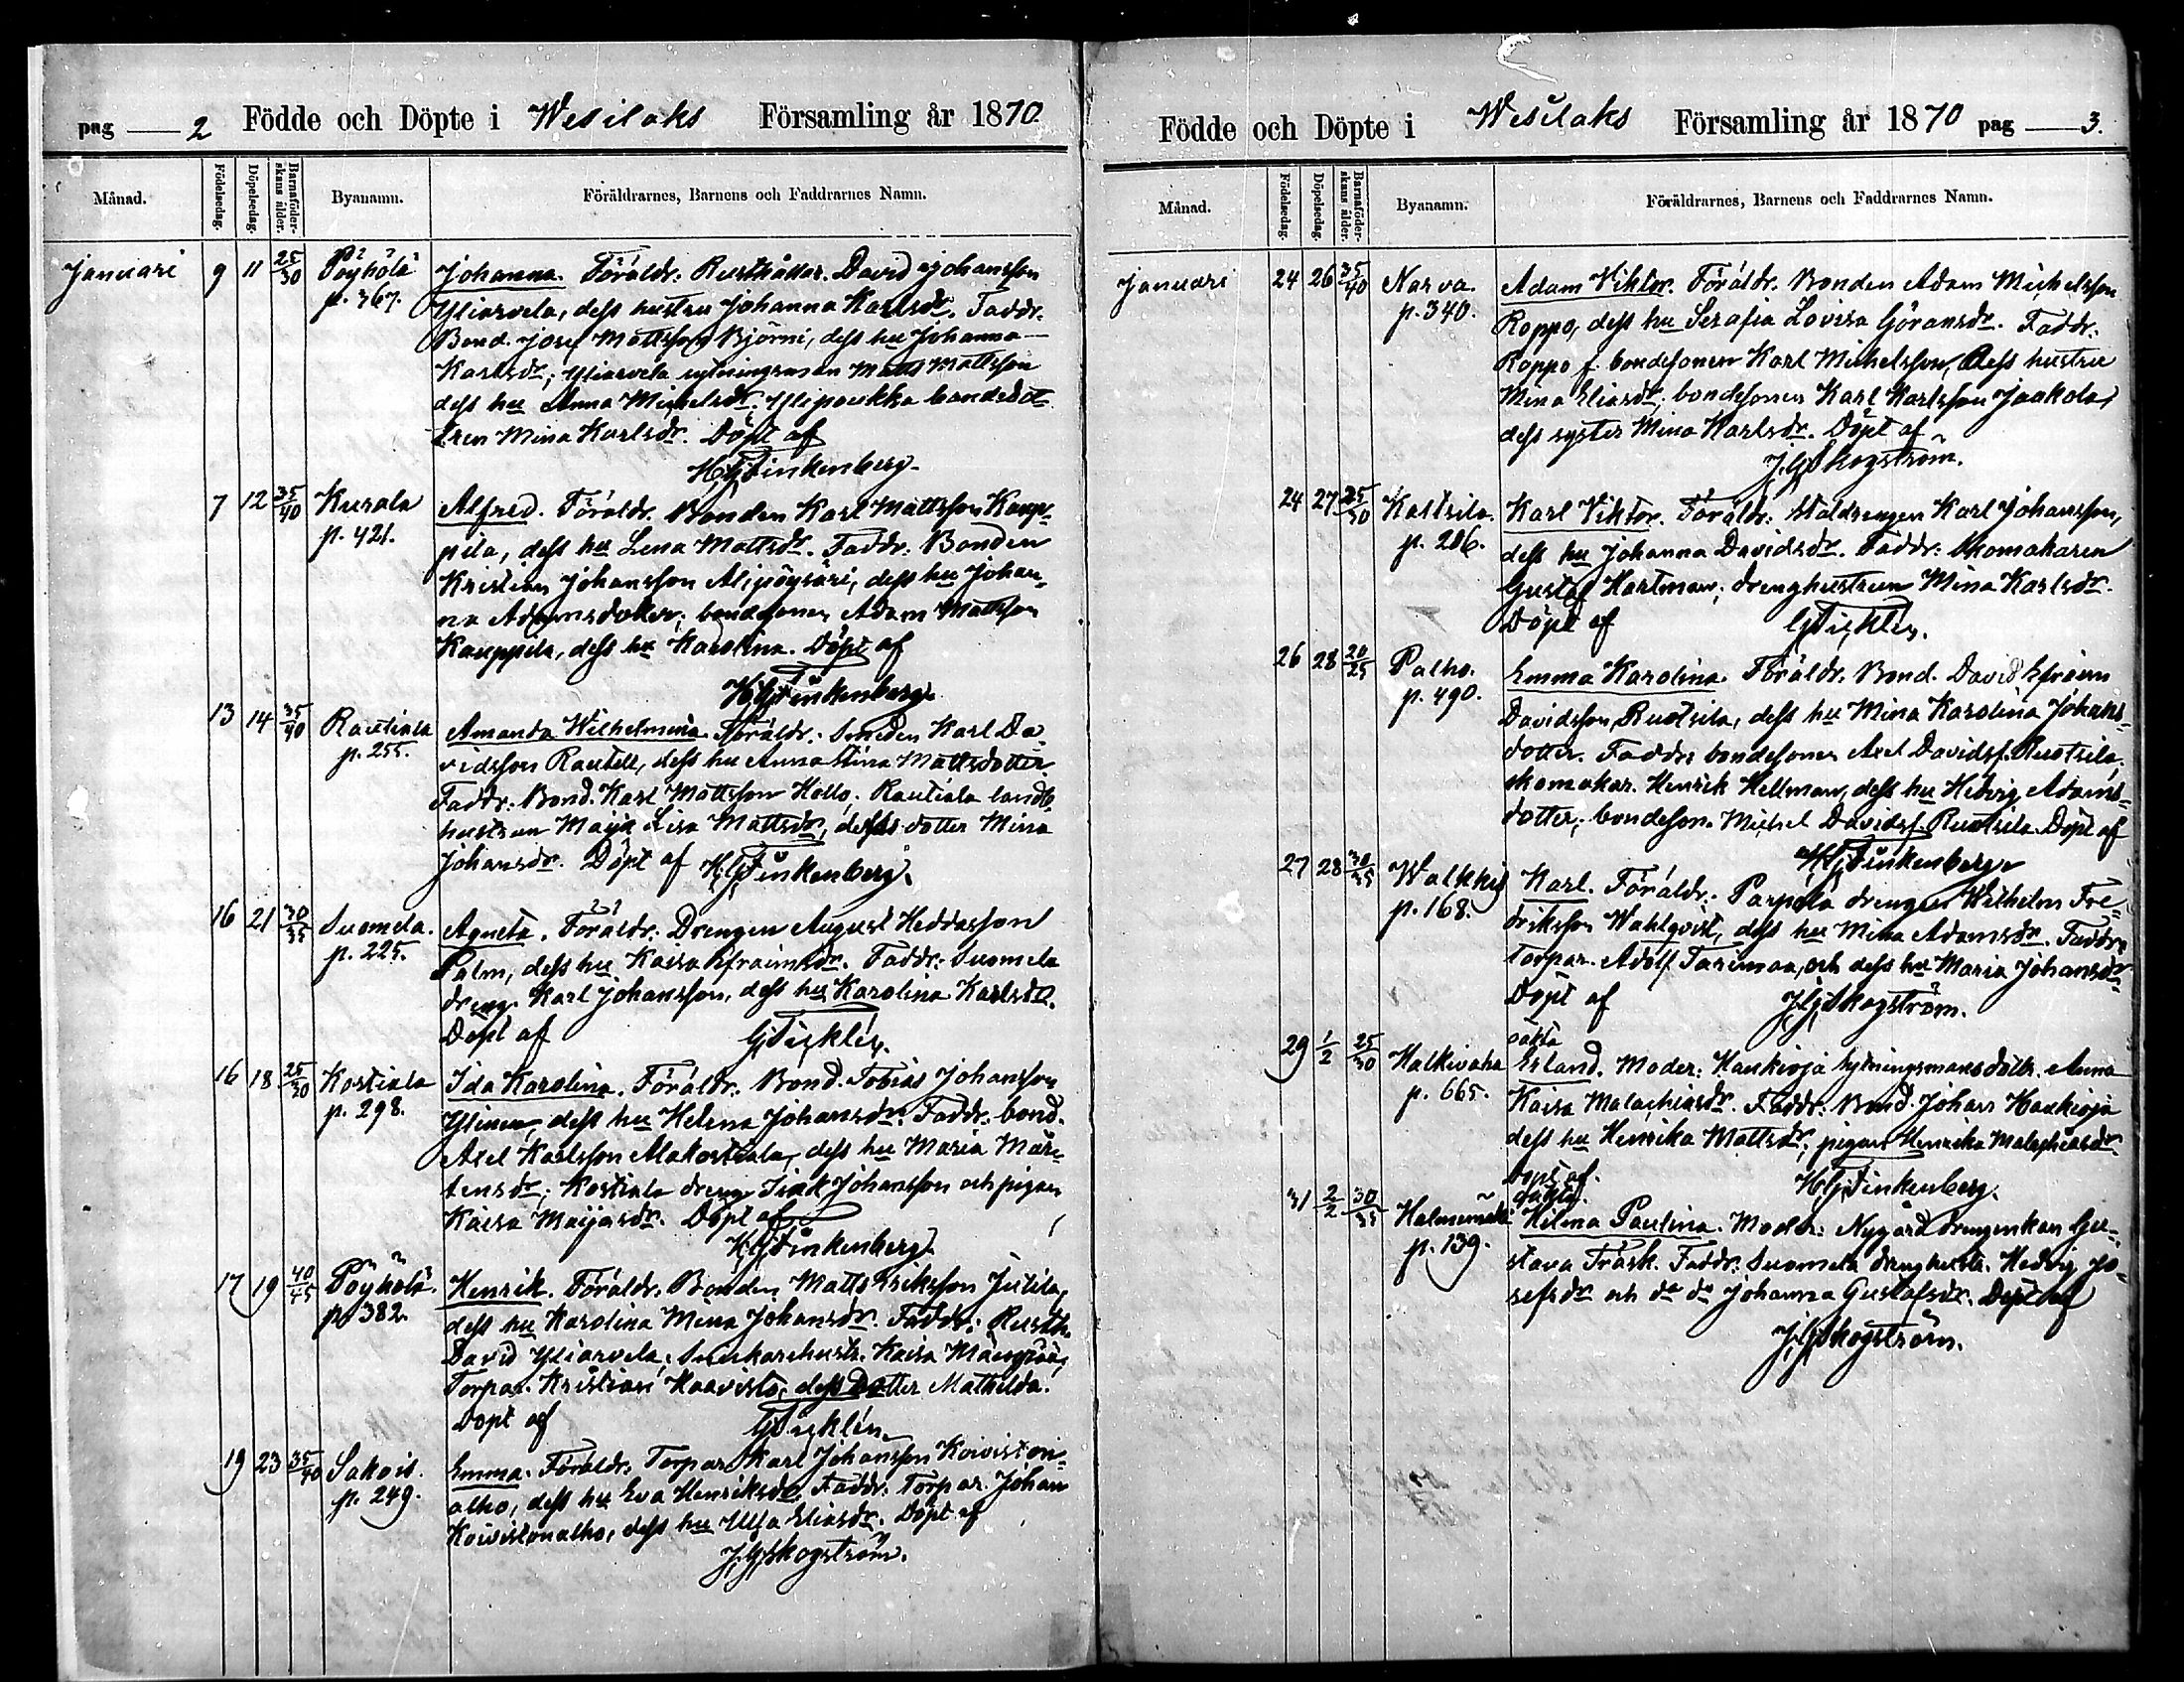 pag 2 Födde och Döpte i Wesilaks Församling år 1870
Månad. Födelsedag. Döpelsedag. Barnaföderskans ålder. Byanamn. Föräldrarnes, Barnens och Faddrarnes Namn.
Januari 9 11 25/30 Pöyhölä Johanna. Föräldr. Rusthållar. David Johansson
p. 367. Yliarvela, dess hustru Johanna Karlsdr. Faddr.
Bond. Josef Mattsson Björni, dess hu Johanna
Karlsdr; Yliarvela sytningsman Matts Mattsson
dess hu Anna Michelsdr. Ylipoukka bondedot
tren Mina Karlsdr. Döpt af
HGFinkenberg.
7 12 35/40 Kurala Alfred. Föräldr. Bonden Karl Mattsson Kaup-
p. 421. pila, dess hu Lena Mattsdr. Faddr: Bonden
Kristian Johansson Alipöysäri, dess hu Johan-
na Adamsdotter; bondsonen Adam Mattsson
Kauppila, dess hu Karolina. Döpt af
HGFinkenberg.
13 14 35/40 Rautiala Amanda Wilhelmina. Föräldr: Smeden Karl Da-
p. 255. vidsson Rautell, dess hu Anna Stina Mattsdotter.
Faddr: Bond. Karl Mattsson Hollo; Rautiala landb.
hustrun Maija Lisa Mattsdr, dess dotter Mina
Johansdr. Döpt af HGFinkenberg.
16 21 30/35 Suomela. Agneta. Föräldr: Drengen August Heddasson
p. 225. Palm, dess hu Kaisa Efraimsdr. Faddr: Suomela
dreng. Karl Johansson, dess hu Karolina Karlsdr.
Döpt af GFicklén.
16 18 25/30 Kostiala Ida Karolina. Föräldr: Bond. Tobias Johansson
p. 298. Ylinen, dess hu Helena Johansdr. Faddr: bond.
Axel Karlsson Alakostiala, dess hu Maria Mår-
tensdr; Kostiala dreng Isak Johansson och pigan
Kaisa Maijasdr. Döpt af
HGFinkenberg.
17 19 40/45 Pöyhölä. Henrik. Föräldr. Bonden Matts Eriksson Jutila,
p. 382. dess hu Karolina Mina Johansdr. Faddr: Rusth.
David Yliarvela; Snickarehustr. Kaisa
Torpar. Kristian Haavisto, dess dotter Mathilda.
Döpt af GFicklén.
19 23 35/40 Sakois. Emma. Föräldr: Torpar. Karl Johansson Koiviston-
p. 249. alho, dess hu Eva Henriksdr. Faddr: Torpar. Johan
Koivistonalho, dess hu Ulla Eliasdr. Döpt af
JGSkogström.
Födde och Döpte i Wesilaks Församling år 1870 pag 3.
Månad. Födelsedag. Döpelsedag. Barnaföderskans ålder. Byanamn. Föräldrarnes, Barnens och Faddrarnes Namn.
Januari 24 26 35/40 Narva. Adam Viktor. Föräldr. Bonden Adam Michelsson
p. 340. Roppo, dess hu Serafia Lovisa Göransdr. Faddr:
Roppo f. bondesonen Karl Michelsson, dess hustru
Mina Eliasdr; bondesonen Karl Karlsson Jaakola,
dess syster Mina Karlsdr. Döpt af
JGSkogström.
24 27 25/30 Kaltsila. Karl Viktor. Föräldr: Staldrengen Karl Johansson,
p. 206. dess hu Johanna Davidsdr. Faddr: Skomakaren
Gustaf Hartman; drenghustrun Mina Karlsdr.
Döpt af GFicklén.
26 28 20/25 Palho. Emma Karolina. Föräldr. Bond. David Efraim
p. 490. Davidsson Ruotsila, dess hu Mina Karolina Johans-
dotter. Faddr: bondesonen Axel Davidss. Ruotsila,
skomakar. Henrik Hellman, dess hu Hedvig Adams-
dotter; bondeson. Michel Davidss. Ruotsila. Döpt af
HGFinkenberg.
27 28 30/35 Walkkis Karl. Föräldr: Parpola drengen Wilhelm Fre-
p. 168. driksson Wahlqvist, dess hu Mina Adamsdr. Faddr:
Torpar. Adolf Tarimaa, och dess hu Maria Johansdr.
Döpt af JGSkogström.
oäkta
29 1/2 25/30 Halkivaha Erland. Moder: Haukioja sytningsmansdottr. Anna
p. 665. Kaisa Malachiasdr. Faddr: Bond. Johan Haukioja
dess hu Henrika Mattsdr; pigan Henrika Malachiasdr.
Döpt af. HGFinkenberg.
oäkta.
31 2/2 30/35 Halmemäki Hilma Paulina. Moder: Nygård drengenkan Gu-
p. 139. stava Träsk. Faddr: Suomela drenghustr. Hedvig Jo-
sefsdr och do do Johanna Gustafsdr. Döpt af
JGSkogström.